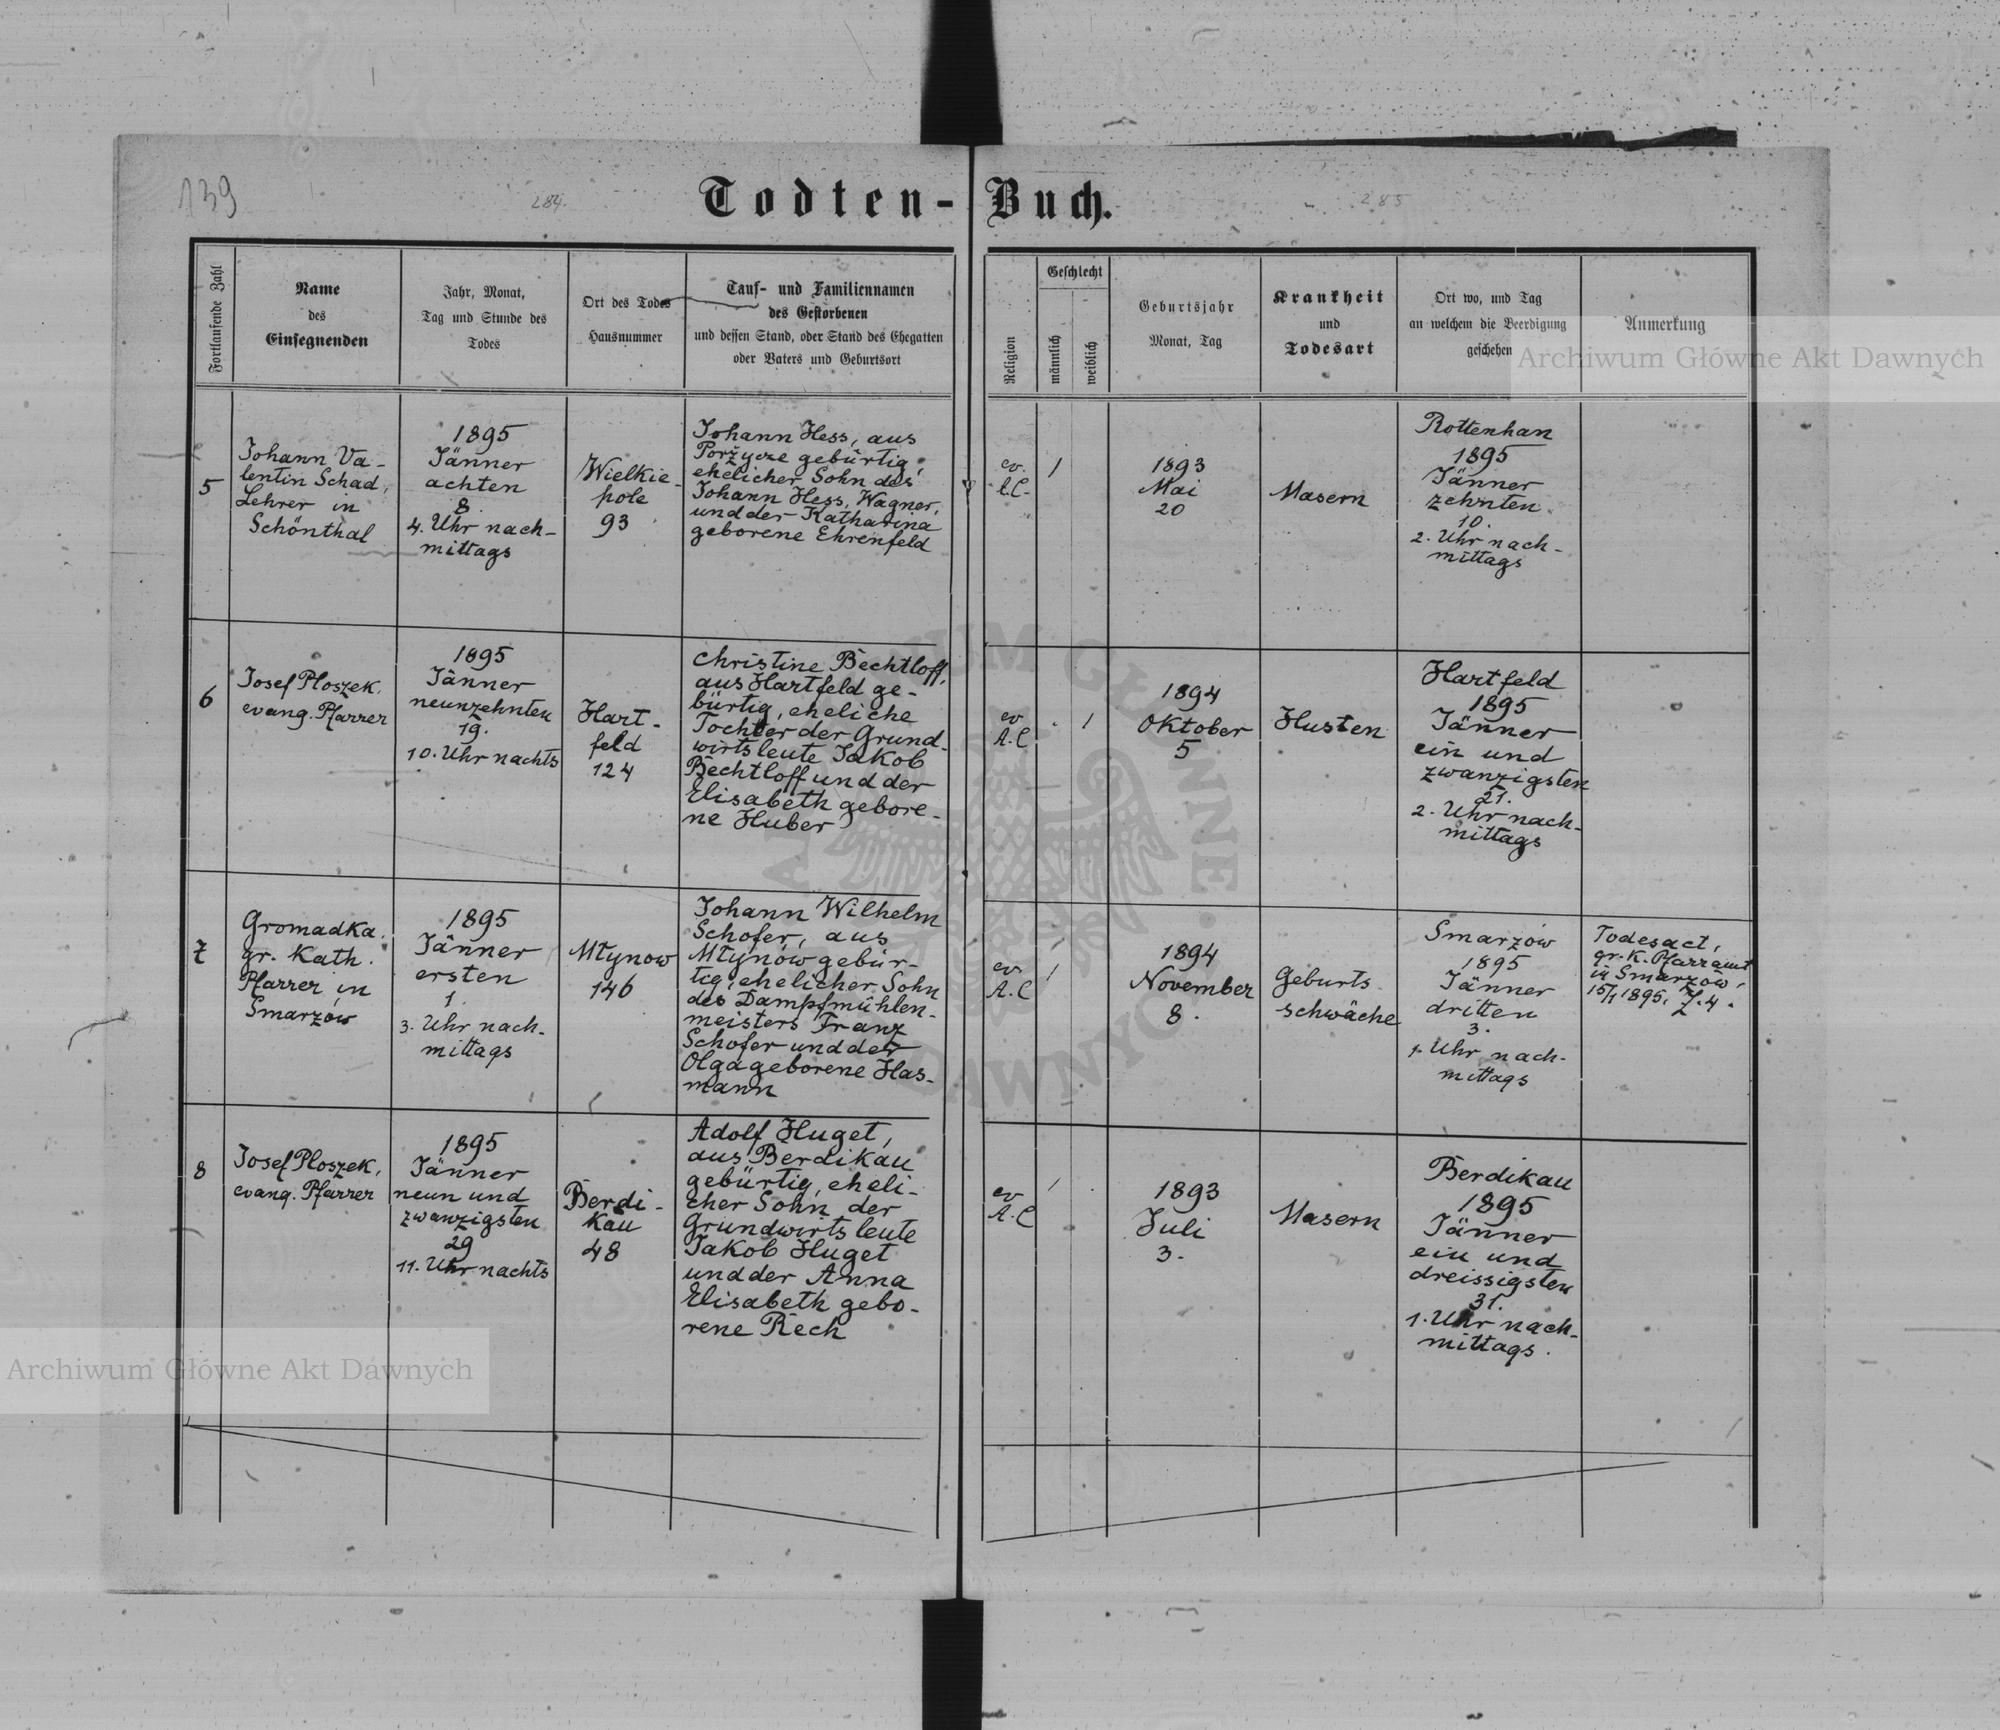 139
284.
285
Todten-Buch.
Fortlaufende Zahl
Name
des
Einsegnenden
Jahr, Monat,
Tag und Stunde des
Todes
Ort des Todes
Hausnummer
Tauf- und Familiennamen
des Gestorbenen
und dessen Stand, oder Stand des Ehegatten
oder Vaters und Geburtsort
Religion
Geschlecht
männlich
weiblich
Geburtsjahr
Monat, Tag
Krankheit
und
Todesart
Ort wo, und Tag
an welchem die Beerdigung
geschehen
Anmerkung
5
Johann Va-
lentin Schad,
Lehrer in
Schönthal
1895
Jänner
achten
8.
4. Uhr nach-
mittags
Wielkie-
pole
93
Johann Hess, aus
Porżycze gebürtig,
ehelicher Sohn des
Johann Hess, Wagner,
und der Katharina
geborene Ehrenfeld
ev.
1
1893
Mai
20
Masern
Rottenhan
1895
Jänner
zehnten
10.
2. Uhr nach-
mittags
6
Josef Ploszek,
evang. Pfarrer
1895
Jänner
neunzehnten
19.
10. Uhr nachts
Hart-
feld
124
Christine Bechtloff,
aus Hartfeld ge-
bürtig, eheliche
Tochter der Grund-
wirtsleute Jakob
Bechtloff und der
Elisabeth gebore-
ne Huber
ev
A.C
1
1894
Oktober
5
Husten
Hartfeld
1895
Jänner
ein und
zwanzigsten
21.
2. Uhr nach-
mittags
7
Gromadka,
gr. Kath.
Pfarrer in
Smarzów
1895
Jänner
ersten
1.
3. Uhr nach-
mittags
Młynow
146
Johann Wilhelm
Schofer, aus
Młynów gebür-
tig, ehelicher Sohn
des Dampfmühlen-
meisters Franz
Schofer und der
Olga geborene Has-
mann
ev.
A.C
1
1894
November
8.
Geburts-
schwäche
Smarzów
1895
Jänner
dritten
3.
1. Uhr nach-
mittags
Todesact,
gr. K. Pfarramt
in Smarzów,
15/1 1895, Z. 4.
8
Josef Ploszek,
evang. Pfarrer
1895
Jänner
neun und
zwanzigsten
29
11. Uhr nachts
Berdi-
kau
48
Adolf Huget,
aus Berdikau
gebürtig, eheli-
cher Sohn der
Grundwirtsleute
Jakob Huget
und der Anna
Elisabeth gebo-
rene Rech
ev
A.C
1
1893
Juli
3.
Masern
Berdikau
1895
Jänner
ein und
dreissigsten
31.
1. Uhr nach-
mittags.
Archiwum Główne Akt Dawnych
Archiwum Główne Akt Dawnych